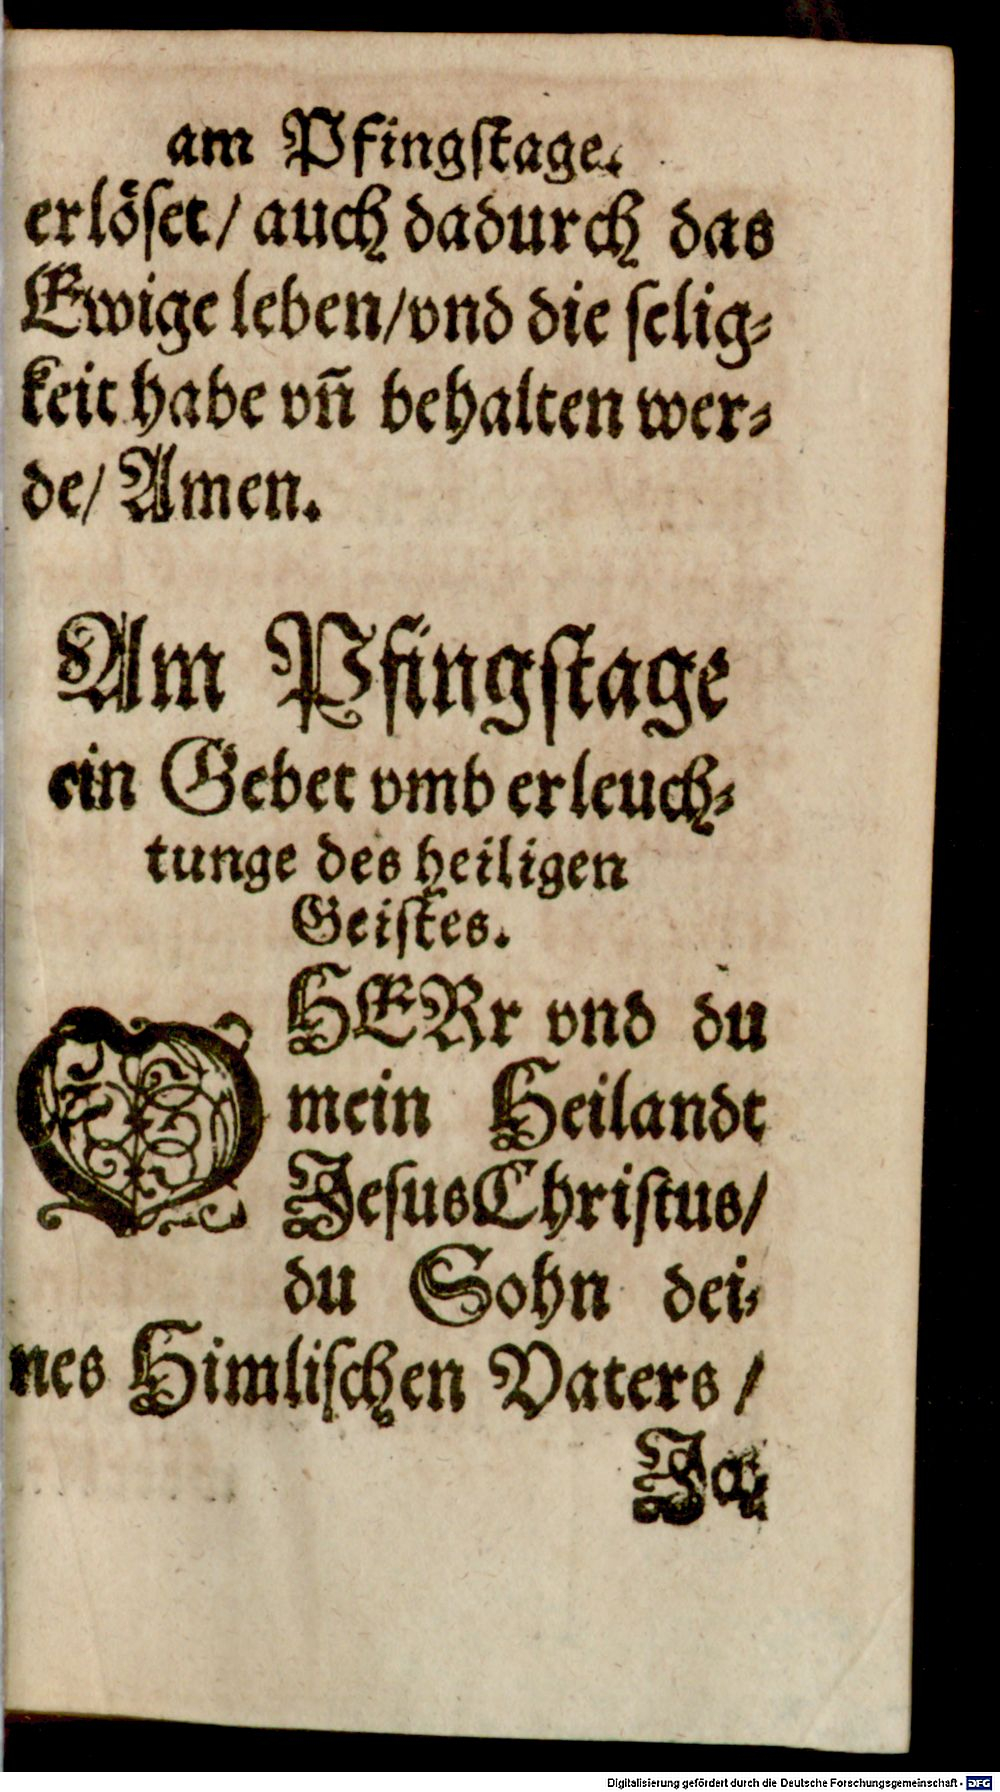 am Pfingſtage.
erlöſet/ auch dadurch das
Ewige leben/vnd die ſelig⸗
keit habe vñ behalten wer⸗
de/ Amen.
Am Pfingſtage
ein Gebet vmb erleuch⸗
tunge des heiligen
Geiſtes.
O HERr vnd du
mein Heilandt
JeſusChriſtus/
du Sohn dei⸗
nes Himliſchen Vaters /
Ich
Digitalisierung gefördert durch die Deutsche Forschungsgemeinschaft - DFG